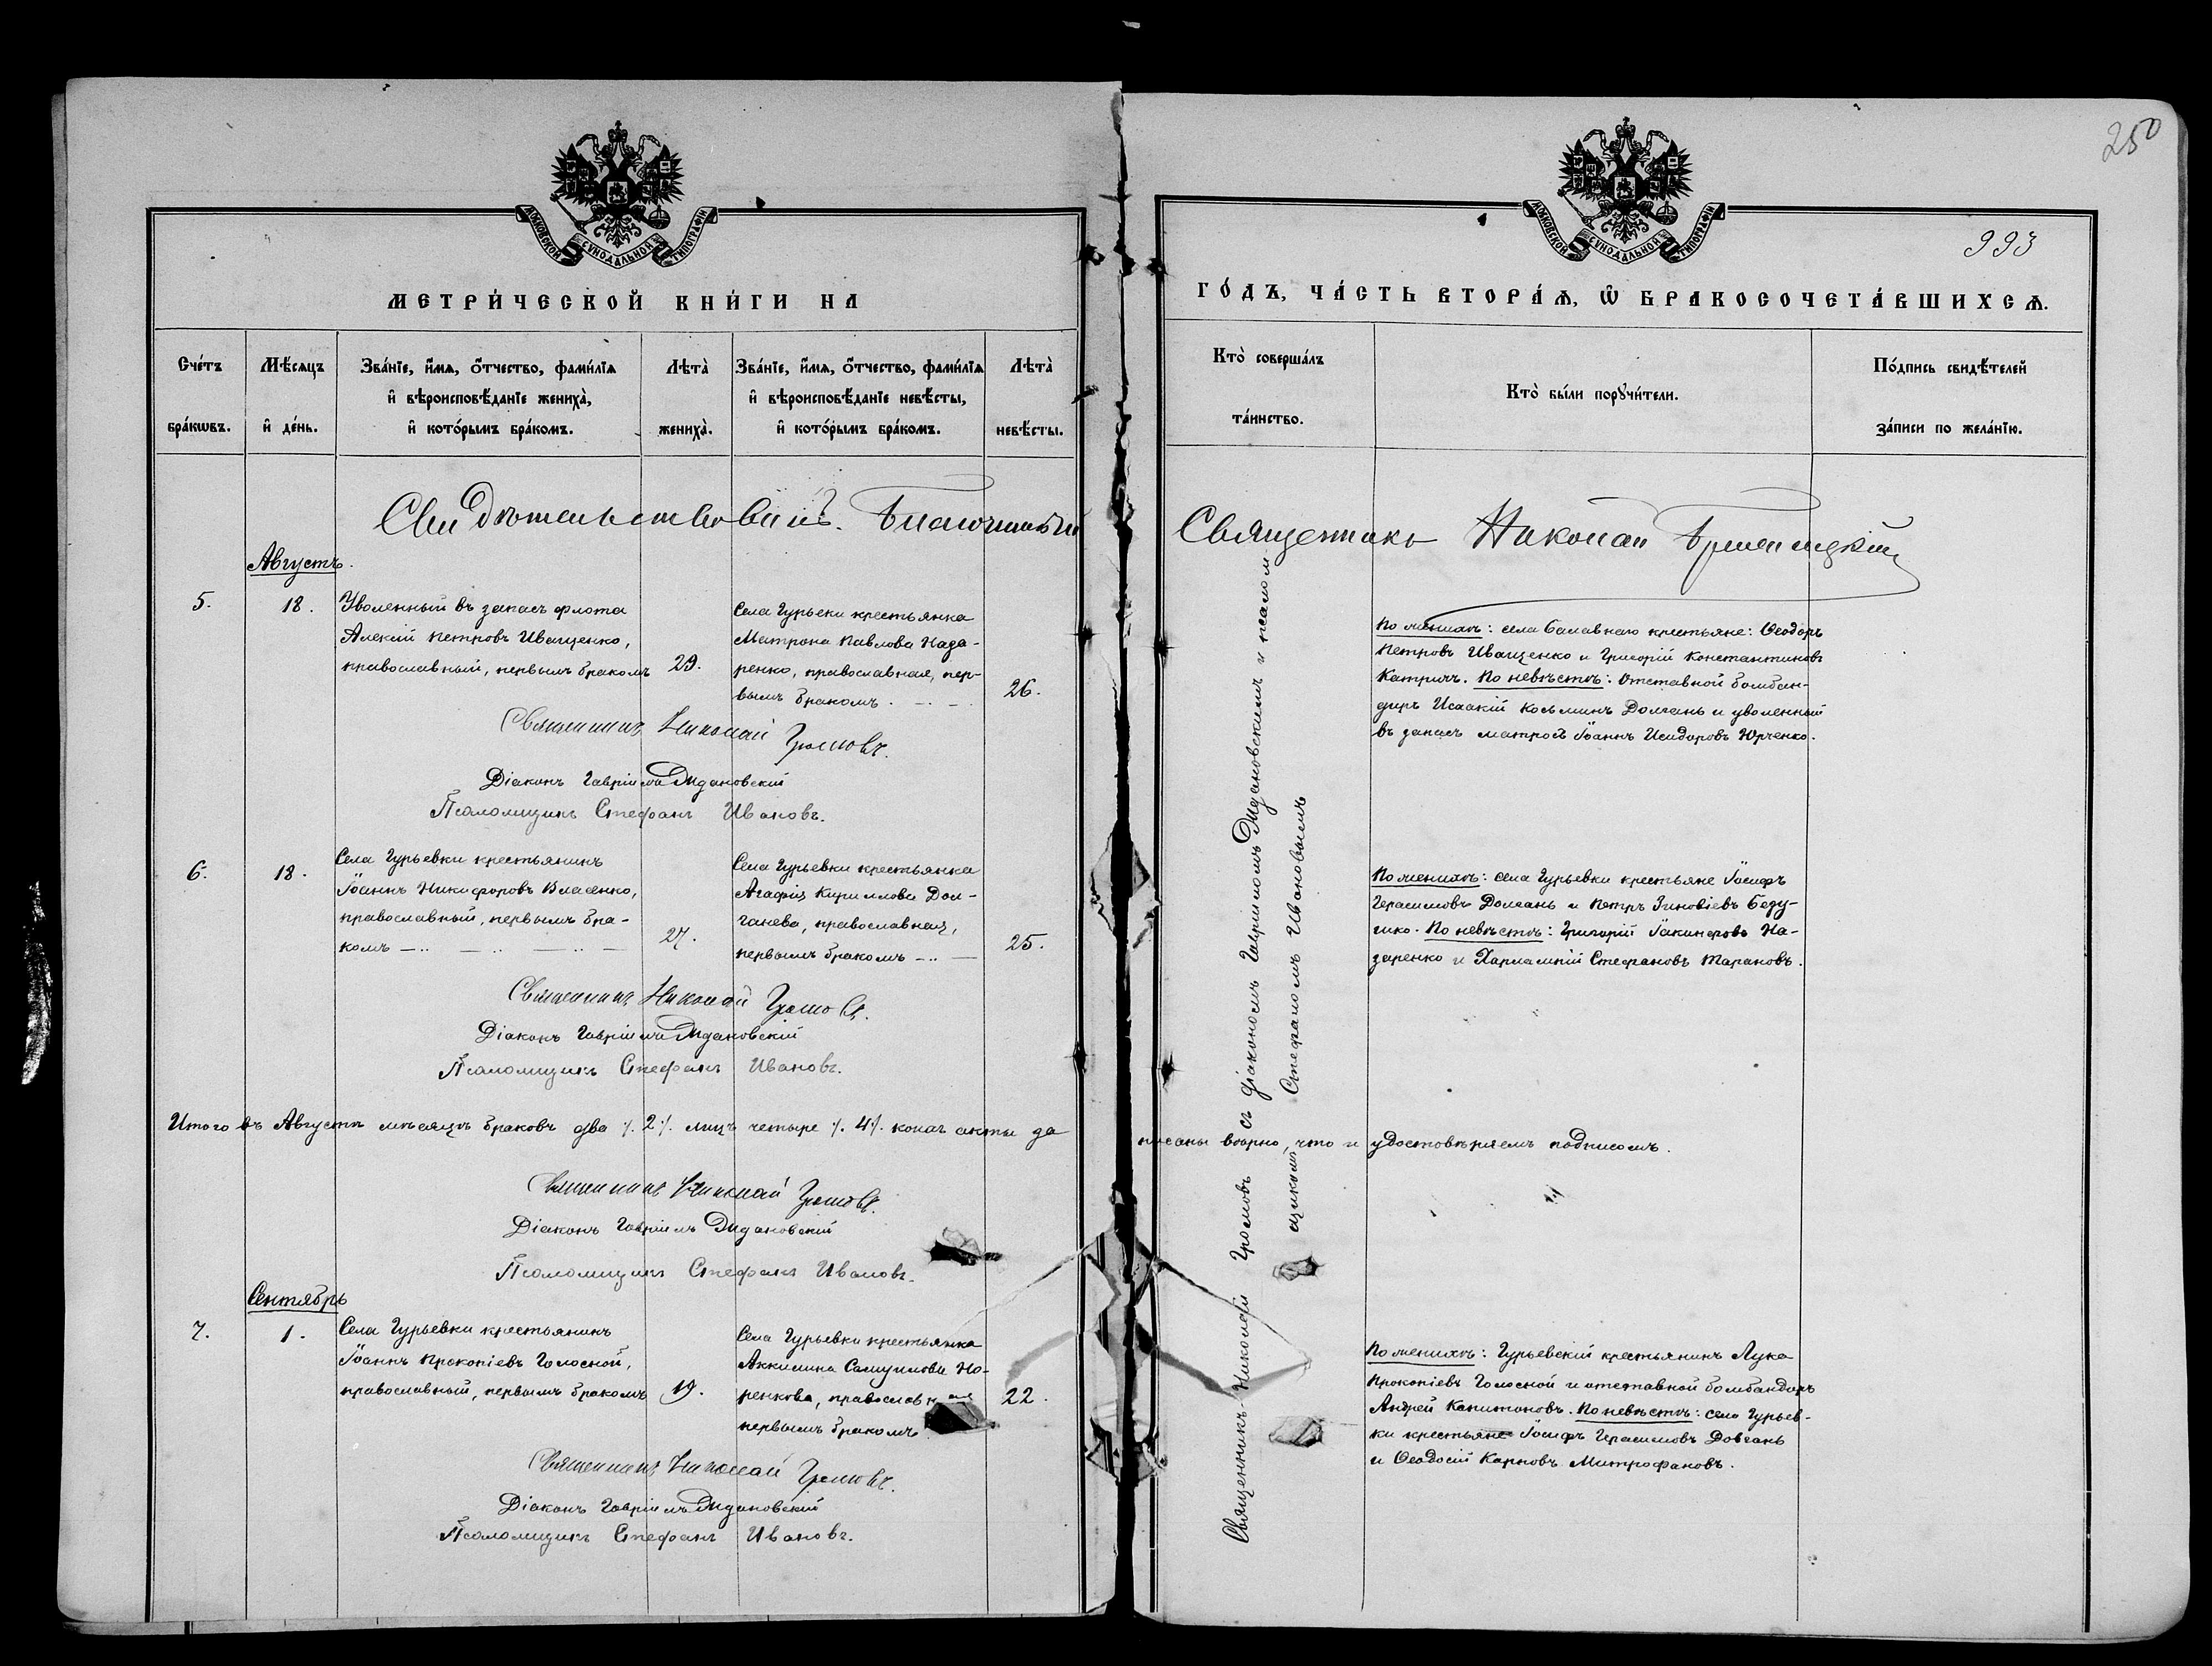 250
МОСКОВСКОЙ СѴНОДАЛЬНОЙ ТИПОГРАФІИ
МОСКОВСКОЙ СѴНОДАЛЬНОЙ ТИПОГРАФІИ
993
МЕТРИ́ЧЕСКОЙ КНИ́ГИ НА
ГО́ДЪ, ЧА́СТЬ ВТОРА́Ѧ, Ѽ БРАКОСОЧЕТА́ВШИХСѦ.
Сче́тъ бра́кѡвъ.
Мѣ́сѧцъ и҆ де́нь.
Зва́нїе, и҆́мѧ, ѻ҆́тчество, фами́лїѧ
и҆ вѣроисповѣ́данїе жениха̀,
и҆ кото́рымъ бра́комъ.
Лѣта̀ жениха̀.
Зва́нїе, и҆́мѧ, ѻ҆́тчество, фами́лїѧ
и҆ вѣроисповѣ́данїе невѣ́сты,
и҆ кото́рымъ бра́комъ.
Лѣта̀ невѣ́сты.
Кто̀ соверша́лъ
та́инство.
Кто̀ бы́ли порꙋчи́тели.
По́дпись свидѣ́телей
за́писи по жела́нїю.
Свидѣтельствовалъ. Благочинный
Священникъ Николай
Августъ.
5.
18.
Уволенный въ запасъ флота
Алексій Петровъ Иващенко,
православный, первымъ бракомъ
29.
Села Гурьевки крестьянка
Матрона Павлова Наза-
ренко, православная, пер-
вымъ бракомъ.
26.
По женихѣ: села Балавнаго крестьяне: Ѳеодоръ
Петровъ Иващенко и Григорій Константиновъ
Катричъ. По невѣстѣ: Отставной бомбан-
диръ Исаакій Козьминъ Долгань и уволенный
въ запасъ матросъ Іоаннъ Исидоровъ Юрченко.
Священникъ Николай Громовъ.
Діаконъ Гавріилъ Ждановскій
Псаломщикъ Стефанъ Ивановъ.
6.
18.
Села Гурьевки крестьянинъ
Іоаннъ Никифоровъ Власенко,
православный, первымъ бра-
комъ
27.
Села Гурьевки крестьянка
Агафія Кириллова Дол-
ганева, православная,
первымъ бракомъ
25.
По женихѣ: села Гурьевки крестьяне Іосифъ
Герасимовъ Долгань и Петръ Зиновіевъ
По невѣстѣ: Григорій Іакинфовъ На-
заренко и Харлампій Стефановъ Тарановъ.
Священникъ Николай Громовъ.
Діаконъ Гавріилъ Ждановскій
Псаломщикъ Стефанъ Ивановъ.
Итого въ Августѣ мѣсяцѣ браковъ два /. 2 /. лицъ четыре /. 4 /. коихъ акты за
писаны вѣрно, что и удостовѣряемъ подписомъ.
Священникъ Николай Громовъ.
Діаконъ Гавріилъ Ждановскій
Псаломщикъ Стефанъ Ивановъ.
Сентябрь
7.
1.
Села Гурьевки крестьянинъ
Іоаннъ Прокопіевъ Голосной,
православный, первымъ бракомъ
19.
Села Гурьевки крестьянка
Аккилина Самуилова Но-
ренкова, православная
первымъ бракомъ
22.
По женихѣ: Гурьевскій крестьянинъ Лука
Прокопіевъ Голосной и отставной бомбандиръ
Андрей Капитоновъ. По невѣстѣ: села Гурьев-
ки крестьяне Іосифъ Герасимовъ Довгань
и Ѳеодосій Карповъ Митрофановъ.
Священникъ Николай Громовъ.
Діаконъ Гавріилъ Ждановскій
Псаломщикъ Стефанъ Ивановъ.
Священникъ Николай Громовъ съ діакономъ Гавріиломъ Ждановскимъ и псалом
щикомъ Стефаномъ Ивановымъ